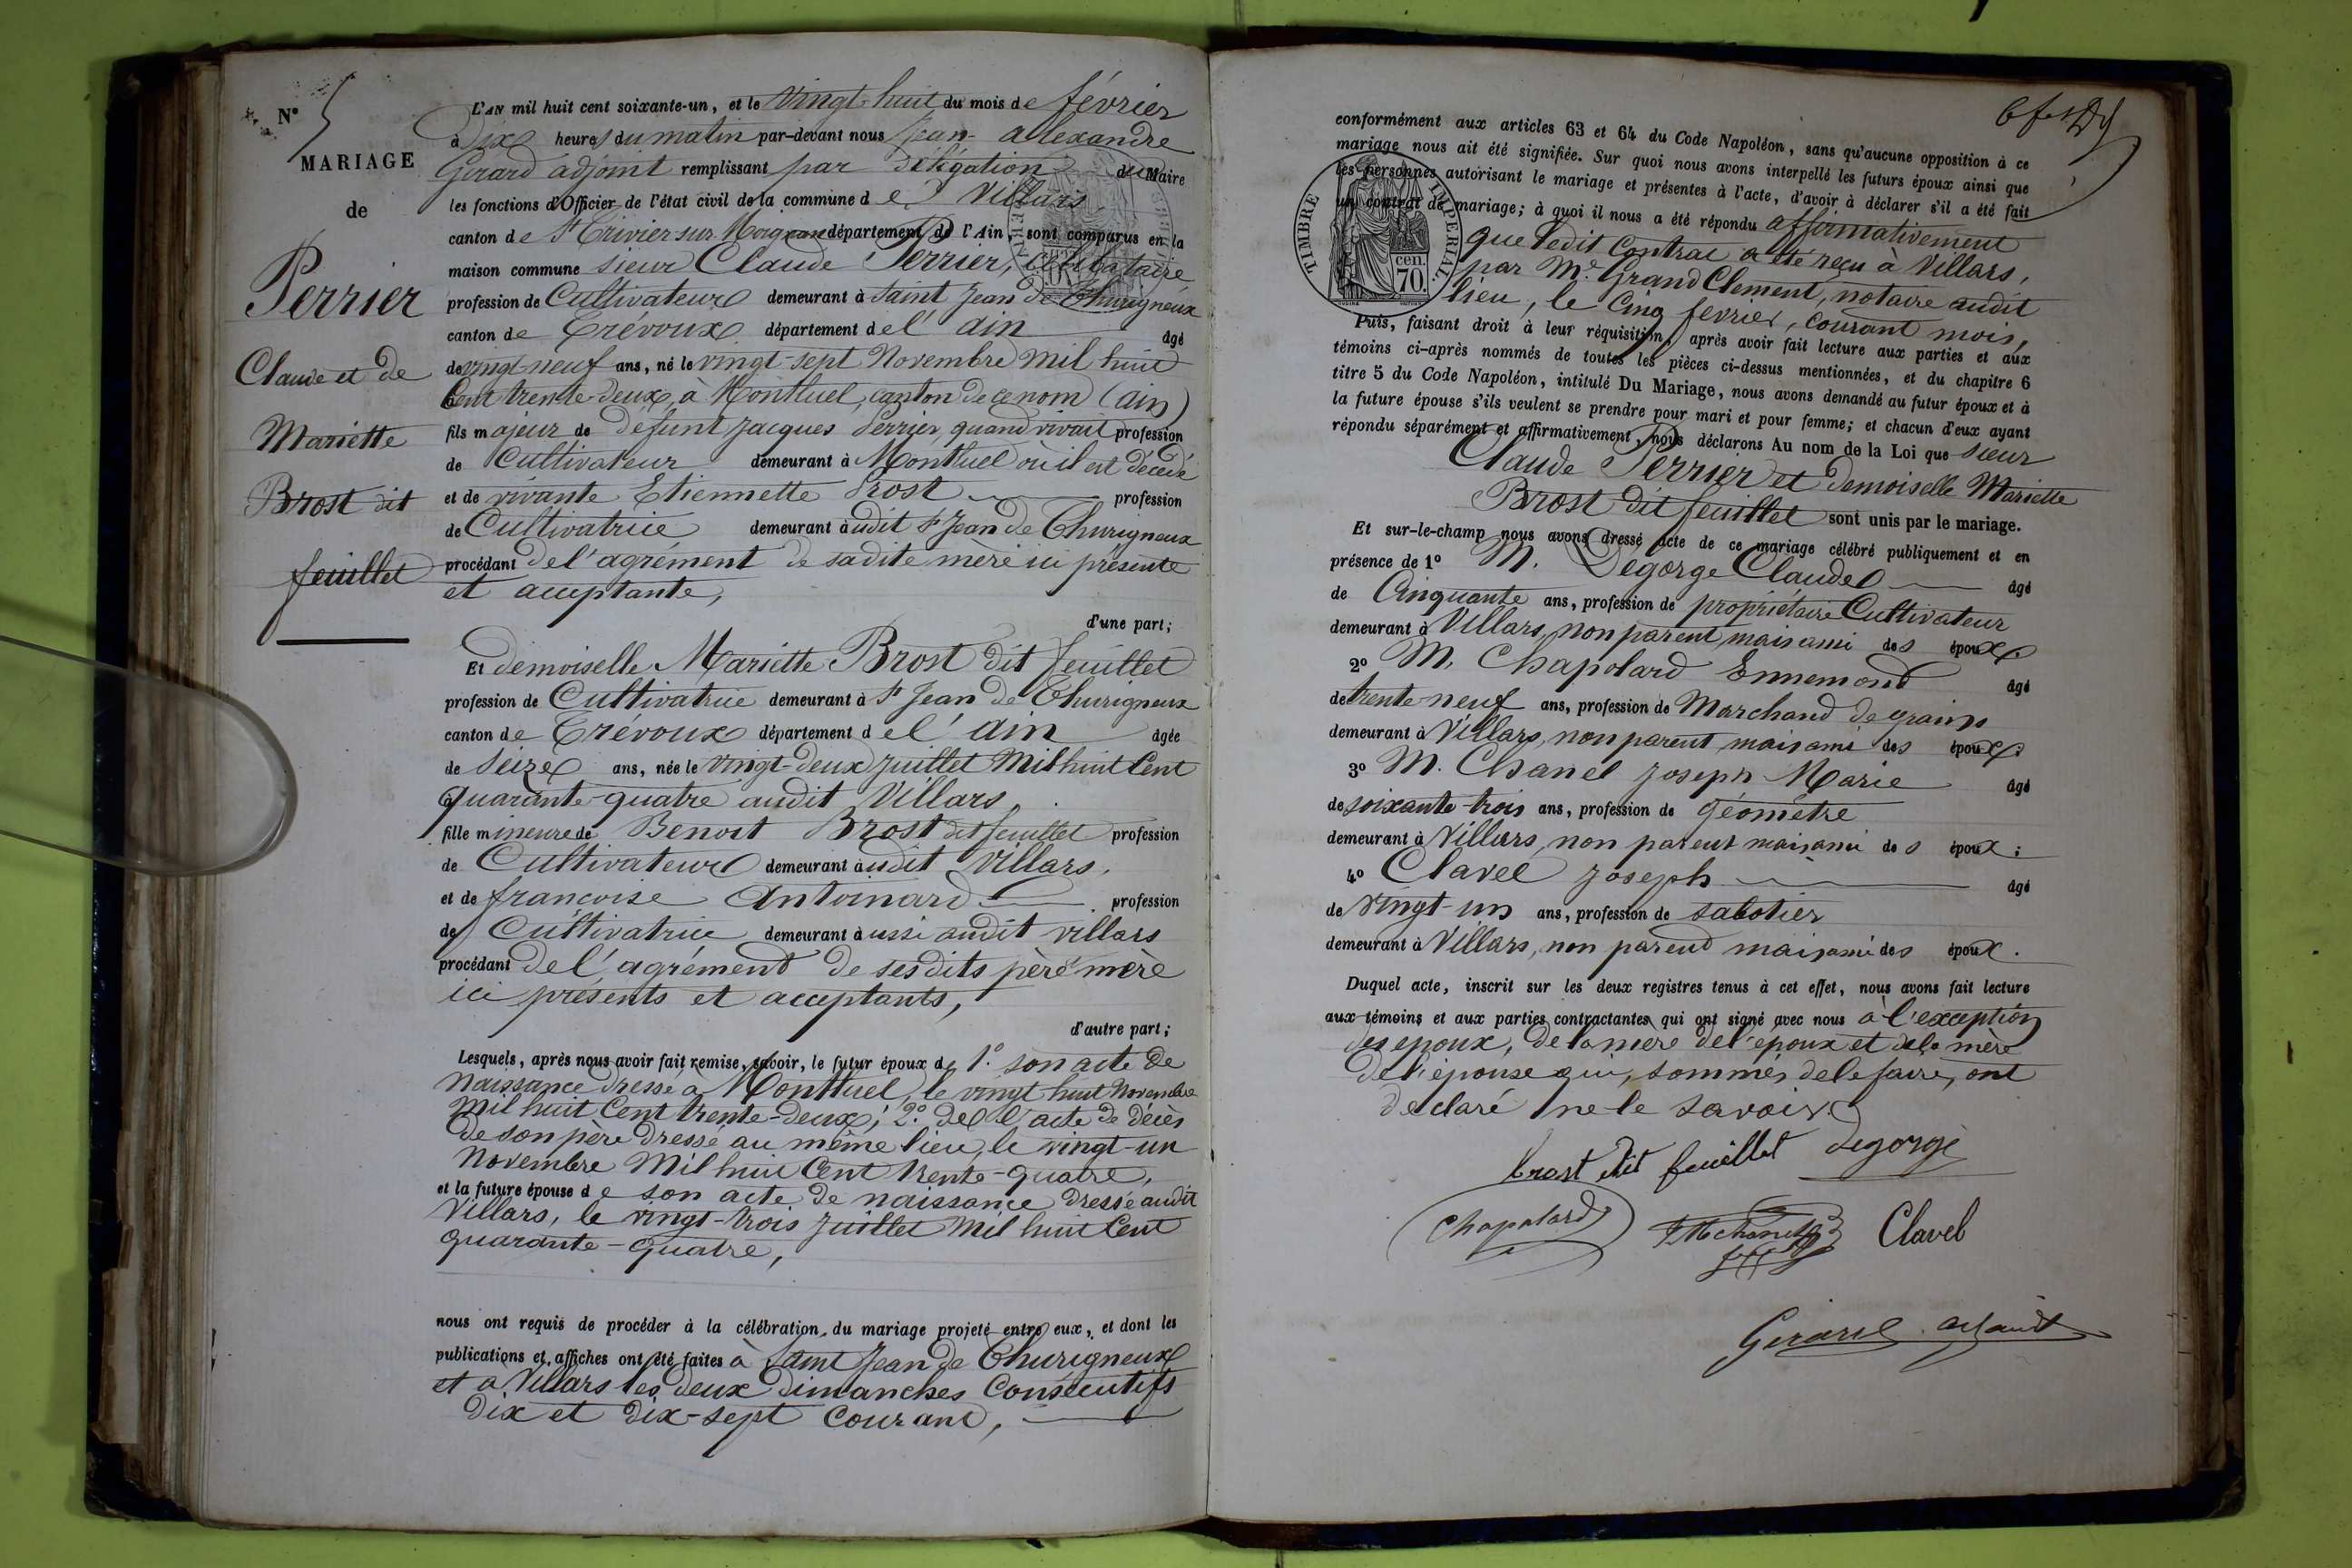 N° 5
MARIAGE
de
Perrier
Claude et de
Mariette
Brost dit
feuillet
L'AN mil huit cent soixante-un, et le vingt-huit du mois de février
à dix heures du matin par-devant nous Jean-alexandre
Gerard adjoint remplissant par délégation du Maire
les fonctions d'Officier de l'état civil de la commune de Villars
canton de St Trivier sur Moignans département de l'Ain, sont comparus en la
maison commune sieur Claude Perrier, célibataire
profession de Cultivateur demeurant à Saint Jean de Thurigneux
canton de Trévoux département de l'ain âgé
de vingt-neuf ans, né le vingt-sept Novembre mil huit
Cent trente-deux, à Montluel, canton de ce nom (ain)
fils majeur de défunt Jacques Perrier, quand vivait profession
de Cultivateur demeurant à Montluel où il est décédé
et de vivante Etiennette Prost profession
de Cultivatrice demeurant audit St Jean de Thurigneux
procédant de l'agrément de sadite mère ici présente
et acceptante,
d'une part;
Et demoiselle Mariette Brost dit feuillet
profession de Cultivatrice demeurant à St Jean de Thurigneux
canton de Trévoux département de l'ain âgée
de Seize ans, née le vingt-deux juillet Mil huit Cent
quarante-quatre audit Villars,
fille mineure de Benoit Brost dit feuillet profession
de Cultivateur demeurant audit Villars,
et de françoise Antoinard profession
de Cultivatrice demeurant aussi audit villars
procédant de l'agrément de sesdits père mère
ici présents et acceptants,
d'autre part;
Lesquels, après nous avoir fait remise, savoir, le futur époux de 1.° son acte de
naissance dressé à Montluel, le vingt huit Novembre
Mil huit Cent trente-deux; 2.° de l'acte de décès
de son père dressé au même lieu, le vingt-un
Novembre Mil huit Cent trente-quatre,
et la future épouse de son acte de naissance dressé audit
Villars, le vingt-trois juillet Mil huit Cent
quarante-quatre,
nous ont requis de procéder à la célébration du mariage projeté entre eux, et dont les
publications et affiches ont été faites à Saint Jean de Thurigneux
et à Villars les deux dimanches Consécutifs
dix et dix-sept courant,
conformément aux articles 63 et 64 du Code Napoléon, sans qu'aucune opposition à ce
mariage nous ait été signifiée. Sur quoi nous avons interpellé les futurs époux ainsi que
les personnes autorisant le mariage et présentes à l'acte, d'avoir à déclarer s'il a été fait
un contrat de mariage; à quoi il nous a été répondu affirmativement
TIMBRE IMPERIAL
cen. 70.
que ledit Contrat a été reçu à Villars,
par Me. Grand Clement, notaire audit
lieu, le Cinq fevrier, courant mois,
Puis, faisant droit à leur réquisition, après avoir fait lecture aux parties et aux
témoins ci-après nommés de toutes les pièces ci-dessus mentionnées, et du chapitre 6
titre 5 du Code Napoléon, intitulé Du Mariage, nous avons demandé au futur époux et à
la future épouse s'ils veulent se prendre pour mari et pour femme; et chacun d'eux ayant
répondu séparément et affirmativement, nous déclarons Au nom de la Loi que sieur
Claude Perrier et demoiselle Mariette
Brost dit feuillet sont unis par le mariage.
Et sur-le-champ nous avons dressé acte de ce mariage célébré publiquement et en
présence de 1° M. Degorge Claude âgé
de Cinquante ans, profession de propriétaire Cultivateur
demeurant à Villars, non parent, mais ami des époux
2° M. Chapolard Ennemond âgé
de trente-neuf ans, profession de Marchand de grains
demeurant à Villars, non parent mais ami des époux;
3° M. Chanel Joseph Marie âgé
de soixante-trois ans, profession de Géomètre
demeurant à Villars, non parent mais ami des époux;
4° Clavel Joseph âgé
de vingt-un ans, profession de sabotier
demeurant à Villars, non parent mais ami des époux.
Duquel acte, inscrit sur les deux registres tenus à cet effet, nous avons fait lecture
aux témoins et aux parties contractantes qui ont signé avec nous à l'exception
des epoux, de la mère de l'époux et de la mère
de l'épouse qui, sommés de le faire, ont
declaré ne le savoir
brost dit feuillet Degorge
Chapolard JM chanel Clavel
Gerard adjoint